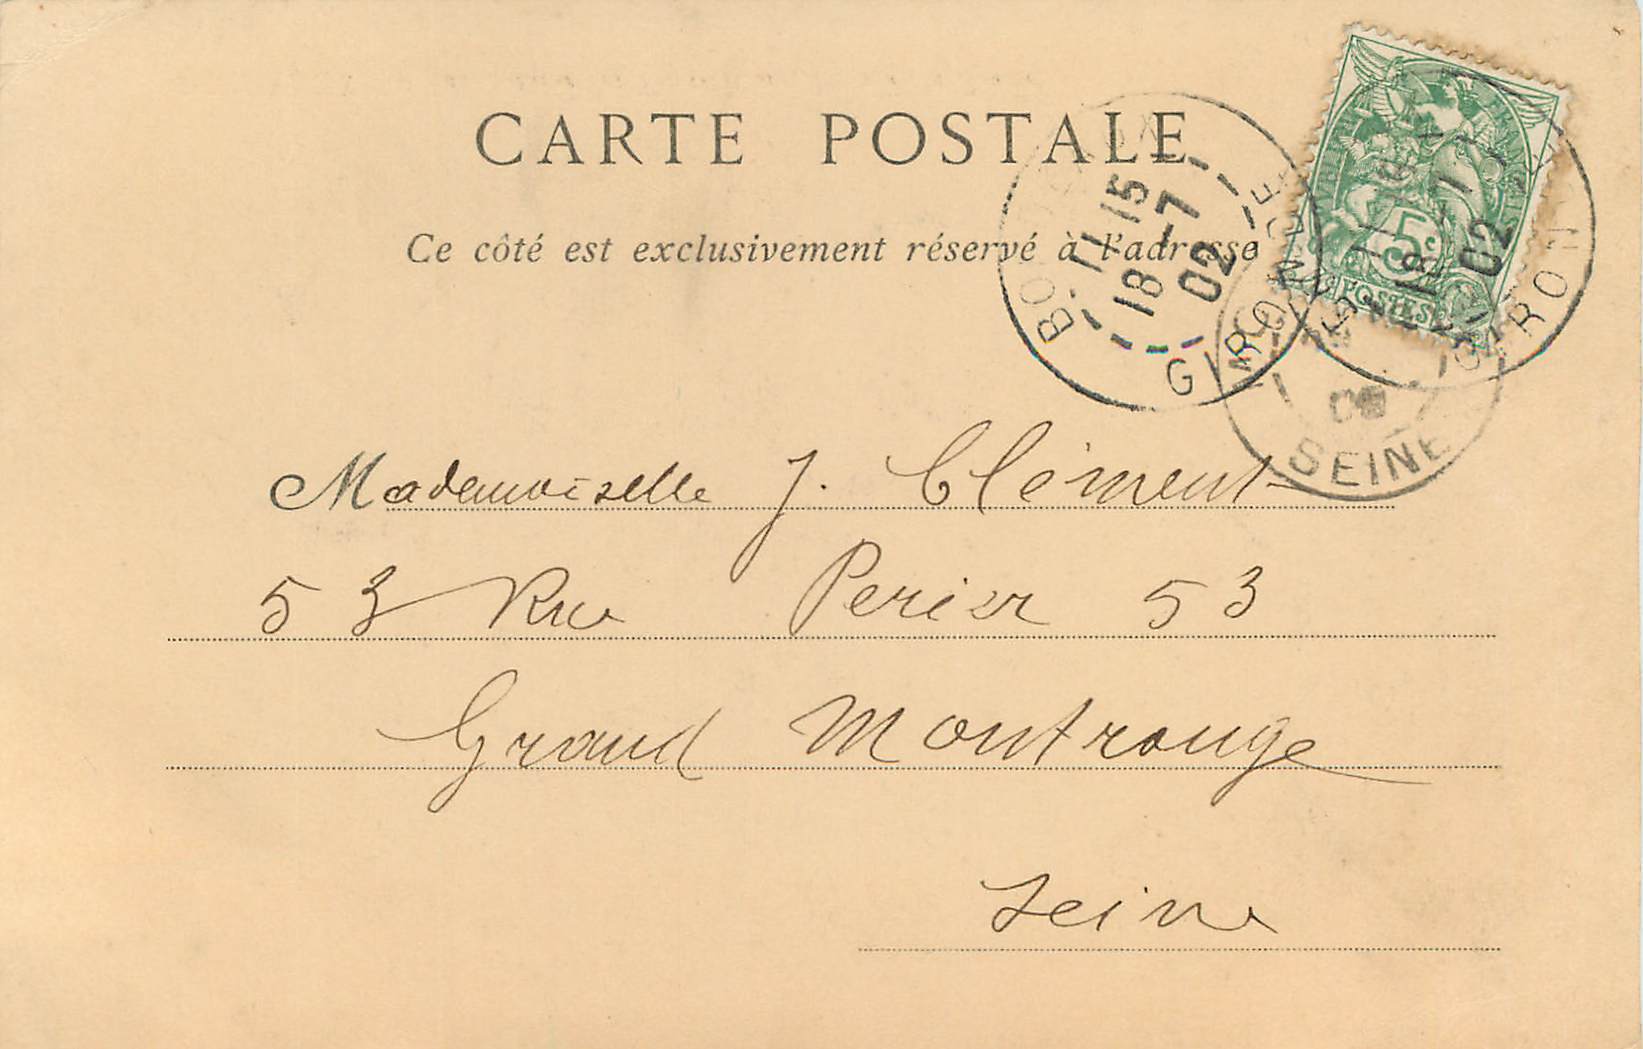 CARTE POSTALE
Ce côté est exclusivement réservé à l'adresse
11 15
18 -7
02
GIRONDE
5c
POSTES
18 -7
02
GIRON
SEINE
Mademoiselle J. Clément
53 Rue Perier 53
Grand Montrouge
Seine